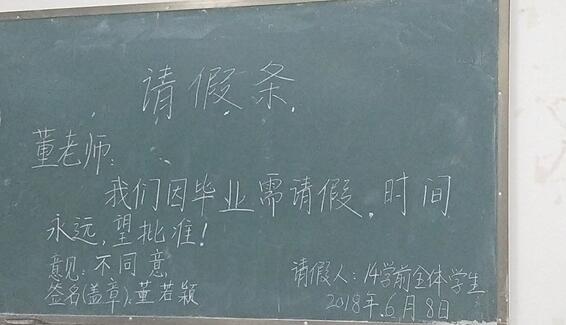 请假条
董老师:
我们因毕业需请假,时间
永远,望批准!
意见:不同意
签名(盖章):董若颖
请假人:14学前全体学生
2018年.6月8日